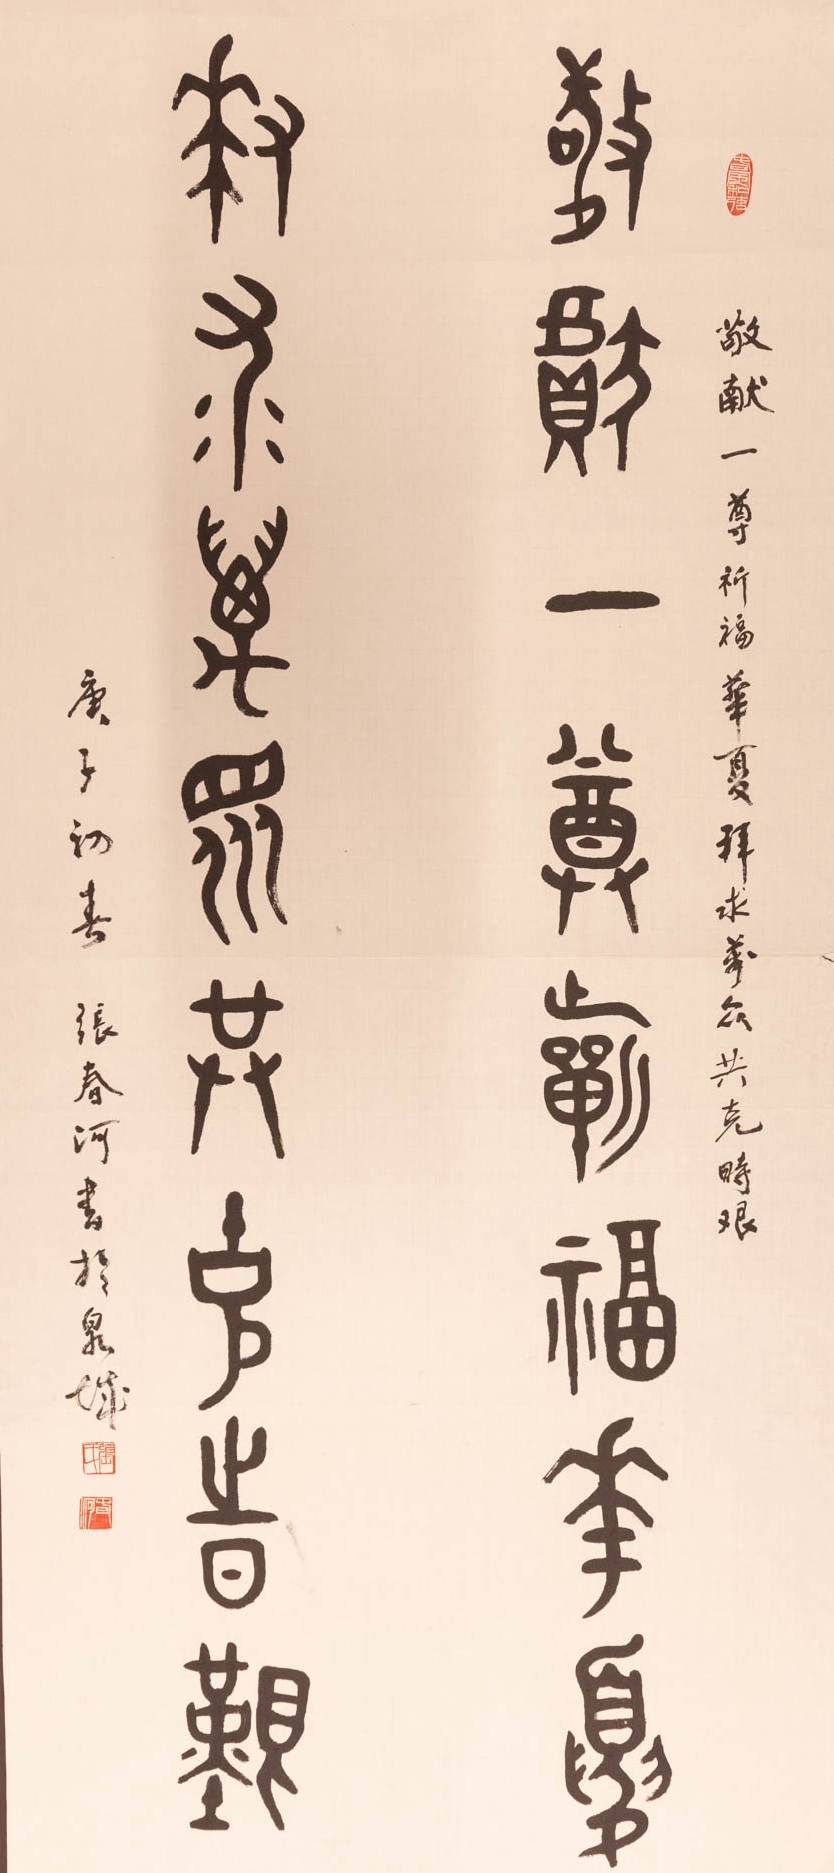 敬献一尊祈福華夏拜求萬众共克時艱
敬獻一尊祈福華夏
拜求萬眾共克時艱
庚子初春 張春河書於泉城